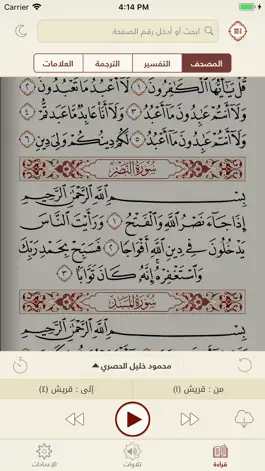 Carrier 4:14 PM
ابحث أو أدخل رقم الصفحة
المصحف التفسير الترجمة العلامات
قُلْ يَٰٓأَيُّهَا ٱلْكَٰفِرُونَ ١ لَآ أَعْبُدُ مَا تَعْبُدُونَ ٢
وَلَآ أَنتُمْ عَٰبِدُونَ مَآ أَعْبُدُ ٣ وَلَآ أَنَا۠ عَابِدٌ مَّا عَبَدتُّمْ ٤
وَلَآ أَنتُمْ عَٰبِدُونَ مَآ أَعْبُدُ ٥ لَكُمْ دِينُكُمْ وَلِىَ دِينِ ٦
سُورَةُ النَّصْرِ
بِسْمِ ٱللَّهِ ٱلرَّحْمَٰنِ ٱلرَّحِيمِ
إِذَا جَآءَ نَصْرُ ٱللَّهِ وَٱلْفَتْحُ ١ وَرَأَيْتَ ٱلنَّاسَ
يَدْخُلُونَ فِى دِينِ ٱللَّهِ أَفْوَاجًا ٢ فَسَبِّحْ بِحَمْدِ رَبِّكَ
وَٱسْتَغْفِرْهُ إِنَّهُۥ كَانَ تَوَّابًۢا ٣
سُورَةُ المَسَدِ
بِسْمِ ٱللَّهِ ٱلرَّحْمَٰنِ ٱلرَّحِيمِ
محمود خليل الحصري
من : قريش (١) إلى : قريش (٤)
قراءة تلاوات الإعدادات